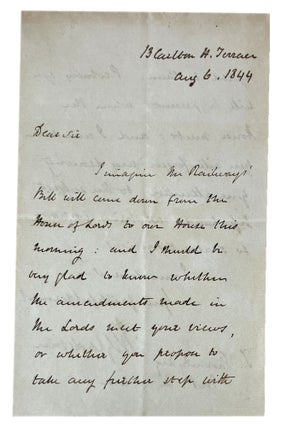 13 Carlton H. Terrace
Aug 6. 1844
Dear Sir
I imagine the Railways'
Bill will come down from the
House of Lords to our House this
morning: and I should be
very glad to know whether
the amendments made in
the Lords meet your views,
or whether you propose to
take any further step with